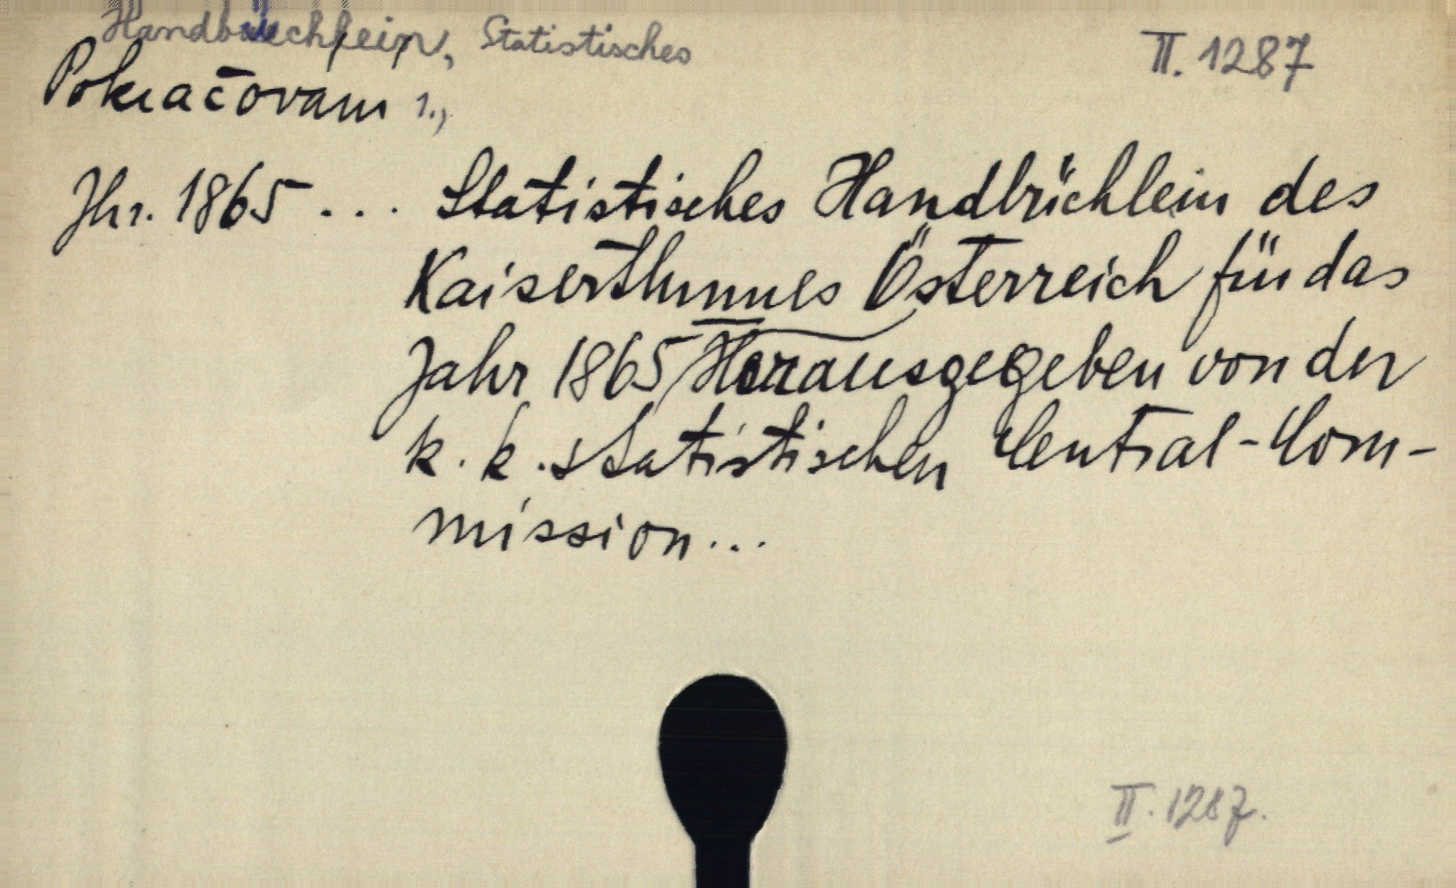 Handbuechlein, Statistisches
II. 1287
Pokračovani 1.,
Jhr. 1865 ... Statistisches Handbüchlein des
Kaiserthumes Österreich für das
Jahr 1865 Herausgegeben von der
k. k. statistischen Central-Com-
mission...
II. 1287.